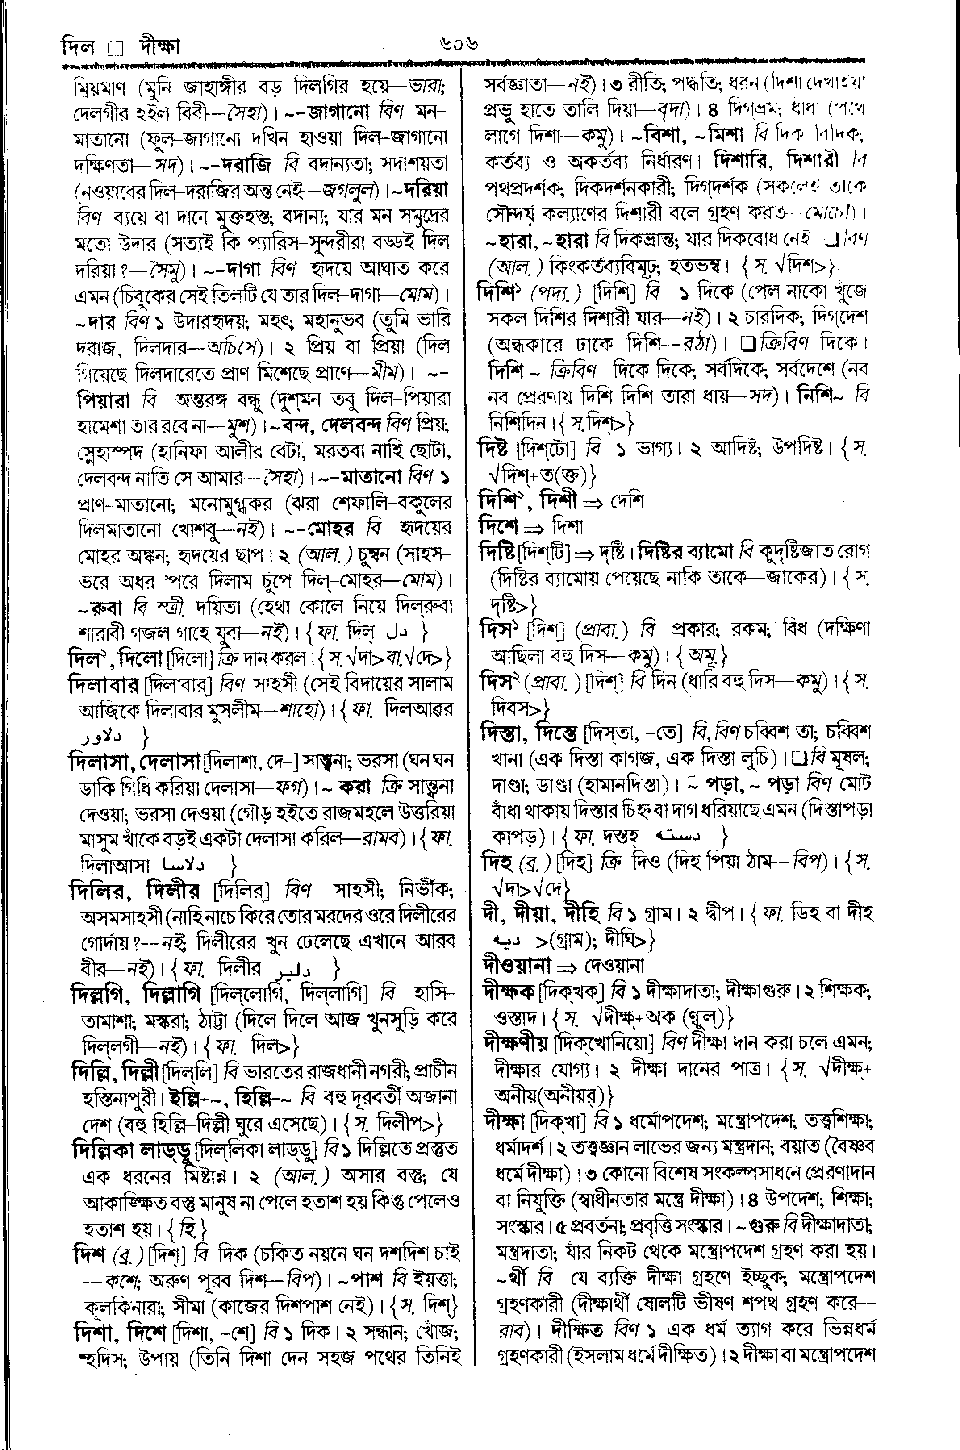 দিল □ দীক্ষা
৬০৬
ম্রিয়মাণ (মুনি জাহাঙ্গীর বড় দিলগির হয়ে—ভারা;
দেলগীর হইল বিবী—সৈহা)। ~-জাগানো বিণ মন-
মাতানো (ফুল-জাগানো দখিন হাওয়া দিল-জাগানো
দক্ষিণতা—সদ)। ~-দরাজি বি বদান্যতা; সদাশয়তা
(নওয়াবের দিল-দরাজির অন্ত নেই—জগলুল)। ~দরিয়া
বিণ ব্যয়ে বা দানে মুক্তহস্ত; বদান্য; যার মন সমুদ্রের
মতো উদার (সত্যই কি প্যারিস-সুন্দরীরা বড্ডই দিল
দরিয়া?—সৈমু)। ~-দাগা বিণ হৃদয়ে আঘাত করে
এমন (চিবুকের সেই তিলটি যে তার দিল-দাগা—মোম)।
~দার বিণ ১ উদারহৃদয়; মহৎ; মহানুভব (তুমি ভারি
দরাজ, দিলদার—অচিসে)। ২ প্রিয় বা প্রিয়া (দিল
গিয়েছে দিলদারেতে প্রাণ মিশেছে প্রাণে—মীম)। ~-
পিয়ারা বি অন্তরঙ্গ বন্ধু (দুশ্‌মন তবু দিল-পিয়ারা
হামেশা তার রবে না—মুশ)। ~বন্দ, দেলবন্দ বিণ প্রিয়;
স্নেহাস্পদ (হানিফা আলীর বেটা, মরতবা নাহি ছোটা,
দেলবন্দ নাতি সে আমার—সৈহা)। ~-মাতানো বিণ ১
প্রাণ-মাতানো; মনোমুগ্ধকর (ঝরা শেফালি-বকুলের
দিলমাতানো খোশবু—নই)। ~-মোহর বি হৃদয়ের
মোহর অঙ্কন; হৃদয়ের ছাপ। ২ (আল.) চুম্বন (সাহস-
ভরে অধর 'পরে দিলাম চুপে দিল্-মোহর—মোম)।
~রুবা বি স্ত্রী. দয়িতা (হেথা কোলে নিয়ে দিলরুবা
শারাবী গজল গাহে যুবা—নই)। {ফা. দিল্ دل }
দিল২, দিলো [দিলো] ক্রি দান করল। {স. √দা>বা.√দে>}
দিলাবার [দিলবার] বিণ সাহসী (সেই বিদায়ের সালাম
আজিকে দিলাবার মুসলীম—শাহো)। {ফা. দিলআৱর
دلاور }
দিলাসা, দেলাসা [দিলাশা, দে-] সান্ত্বনা; ভরসা (ঘন ঘন
ডাকি গিধি করিয়া দেলাসা—ফগ)। ~ করা ক্রি সান্ত্বনা
দেওয়া; ভরসা দেওয়া (গৌড় হইতে রাজমহলে উত্তরিয়া
মাসুম খাঁকে বড়ই একটা দেলাসা করিল—রামব)। {ফা.
দিলাআসা دلاسا }
দিলির, দিলীর [দিলির্] বিণ সাহসী; নির্ভীক;
অসমসাহসী (নাহি নাচে কিরে তোর মরদের ওরে দিলীরের
গোর্দায়?—নই; দিলীরের খুন ঢেলেছে এখানে আরব
বীর—নই)। {ফা. দিলীর دلیر }
দিল্লগি, দিল্লাগি [দিল্‌লোগি, দিল্‌লাগি] বি হাসি-
তামাশা; মস্করা; ঠাট্টা (দিলে দিলে আজ খুনসুড়ি করে
দিল্‌লগী—নই)। {ফা. দিল>}
দিল্লি, দিল্লী [দিল্‌লি] বি ভারতের রাজধানী নগরী; প্রাচীন
হস্তিনাপুরী। ইল্লি-~, হিল্লি-~ বি বহু দূরবর্তী অজানা
দেশ (বহু হিল্লি-দিল্লী ঘুরে এসেছে)। {স. দিলীপ>}
দিল্লিকা লাড্ডু [দিল্‌লিকা লাড্‌ডু] বি ১ দিল্লিতে প্রস্তুত
এক ধরনের মিষ্টান্ন। ২ (আল.) অসার বস্তু; যে
আকাঙ্ক্ষিত বস্তু মানুষ না পেলে হতাশ হয় কিন্তু পেলেও
হতাশ হয়। {হি.}
দিশ (ব্র.) [দিশ্] বি দিক (চকিত নয়নে ঘন দশদিশ চাই
—কশে; অরুণ পূরব দিশ—বিপ)। ~পাশ বি ইয়ত্তা;
কূলকিনারা; সীমা (কাজের দিশপাশ নেই)। {স. দিশ্}
দিশা, দিশে [দিশা, -শে] বি ১ দিক। ২ সন্ধান; খোঁজ;
হদিস; উপায় (তিনি দিশা দেন সহজ পথের তিনিই
সর্বজ্ঞাতা—নই)। ৩ রীতি; পদ্ধতি; ধরন (দিশা দেখাইয়া
প্রভু হাতে তালি দিয়া—বৃদা)। ৪ দিগ্‌ভ্রম; ধাঁধা (পথে
লাগে দিশা—কমু)। ~বিশা, ~মিশা বি দিক বিদিক;
কর্তব্য ও অকর্তব্য নির্ধারণ। দিশারি, দিশারী বি
পথপ্রদর্শক; দিকদর্শনকারী; দিগ্‌দর্শক (সকলেই তাকে
সৌন্দর্য কল্যাণের দিশারী বলে গ্রহণ করত—মোহো)।
~হারা, ~হারা বি দিকভ্রান্ত; যার দিকবোধ নেই □বিণ
(আল.) কিংকর্তব্যবিমূঢ়; হতভম্ব। {স. √দিশ>}
দিশি১ (পদ্য.) [দিশি] বি ১ দিকে (পেল নাকো খুঁজে
সকল দিশির দিশারী যার—নই)। ২ চারদিক; দিগ্‌দেশ
(অন্ধকারে ঢাকে দিশি—রঠা)। □ ক্রিবিণ দিকে।
দিশি ~ ক্রিবিণ দিকে দিকে; সর্বদিকে; সর্বদেশে (নব
নব প্রেরণায় দিশি দিশি তারা ধায়—সদ)। নিশি~ বি
নিশিদিন। {স.দিশ্>}
দিষ্ট [দিশ্‌টো] বি ১ ভাগ্য। ২ আদিষ্ট; উপদিষ্ট। {স.
√দিশ্+ত(ক্ত)}
দিশি২, দিশী ⇒ দেশি
দিশে ⇒ দিশা
দিষ্টি [দিশ্‌টি] ⇒ দৃষ্টি। দিষ্টির ব্যামো বি কুদৃষ্টিজাত রোগ
(দিষ্টির ব্যামোয় পেয়েছে নাকি তাকে—জাকের)। {স.
দৃষ্টি>}
দিস১ [দিশ্] (প্রাবা.) বি প্রকার; রকম; বিধ (দক্ষিণা
আছিলা বহু দিস—কমু)। {অমূ.}
দিস২ (প্রাবা.) [দিশ্] বি দিন (ধারি বহু দিস—কমু)। {স.
দিবস>}
দিস্তা, দিস্তে [দিস্‌তা, -তে] বি, বিণ চব্বিশ তা; চব্বিশ
খানা (এক দিস্তা কাগজ, এক দিস্তা লুচি)। □বি মুষল;
দাণ্ডা; ডাণ্ডা (হামানদিস্তা)। ~ পড়া, ~ পড়া বিণ মোট
বাঁধা থাকায় দিস্তার চিহ্ন বা দাগ ধরিয়াছে এমন (দিস্তাপড়া
কাপড়)। {ফা. দস্তহ্ دسته }
দিহ (ব্র.) [দিহ] ক্রি দিও (দিহ পিয়া ঠাম—বিপ)। {স.
√দা>√দে}
দী, দীয়া, দীহি বি ১ গ্রাম। ২ দ্বীপ। {ফা. ডিহ বা দীহ
دیه >(গ্রাম); দীঘি>}
দীওয়ানা ⇒ দেওয়ানা
দীক্ষক [দিক্‌খক] বি ১ দীক্ষাদাতা; দীক্ষাগুরু। ২ শিক্ষক;
ওস্তাদ। {স. √দীক্ষ্+অক (ণ্বুল্)}
দীক্ষণীয় [দিক্‌খোনিয়ো] বিণ দীক্ষা দান করা চলে এমন;
দীক্ষার যোগ্য। ২ দীক্ষা দানের পাত্র। {স. √দীক্ষ্+
অনীয়(অনীয়র্)}
দীক্ষা [দিক্‌খা] বি ১ ধর্মোপদেশ; মন্ত্রোপদেশ; তত্ত্বশিক্ষা;
ধর্মাদর্শ। ২ তত্ত্বজ্ঞান লাভের জন্য মন্ত্রদান; বয়াত (বৈষ্ণব
ধর্মে দীক্ষা)। ৩ কোনো বিশেষ সংকল্পসাধনে প্রেরণাদান
বা নিযুক্তি (স্বাধীনতার মন্ত্রে দীক্ষা)। ৪ উপদেশ; শিক্ষা;
সংস্কার। ৫ প্রবর্তনা; প্রবৃত্তি সংস্কার। ~গুরু বি দীক্ষাদাতা;
মন্ত্রদাতা; যাঁর নিকট থেকে মন্ত্রোপদেশ গ্রহণ করা হয়।
~র্থী বি যে ব্যক্তি দীক্ষা গ্রহণে ইচ্ছুক; মন্ত্রোপদেশ
গ্রহণকারী (দীক্ষার্থী ষোলটি ভীষণ শপথ গ্রহণ করে—
রাব)। দীক্ষিত বিণ ১ এক ধর্ম ত্যাগ করে ভিন্নধর্ম
গ্রহণকারী (ইসলাম ধর্মে দীক্ষিত)। ২ দীক্ষা বা মন্ত্রোপদেশ